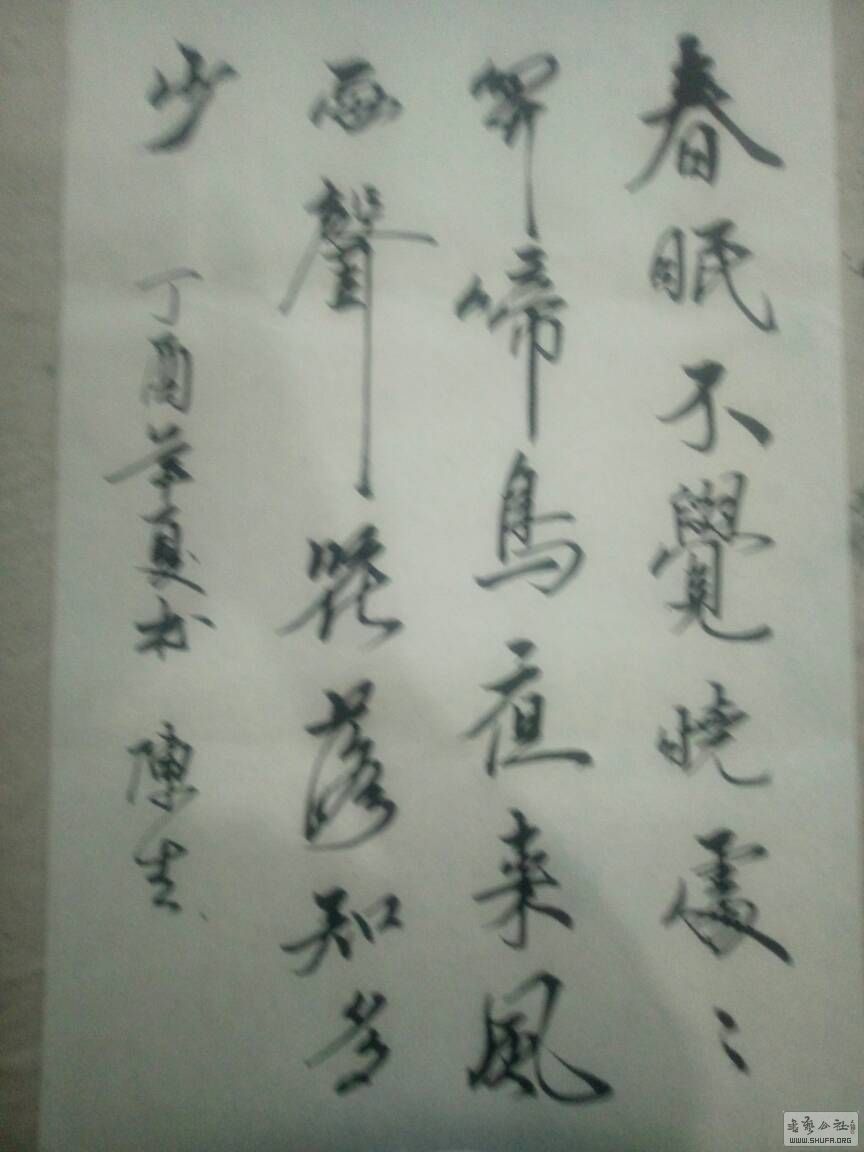 春眠不覺曉處〻
聞啼鳥夜来風
雨聲花落知多
少
丁酉年夏书 陳生
书艺公社
WWW.SHUFA.ORG